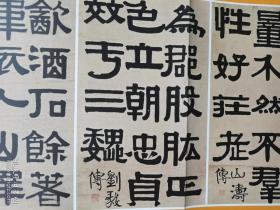 量介然不群
性好莊老
山濤傳
為郡股肱正
色立朝忠貞
效于三魏
劉毅傳
飲酒石餘著
衣入山